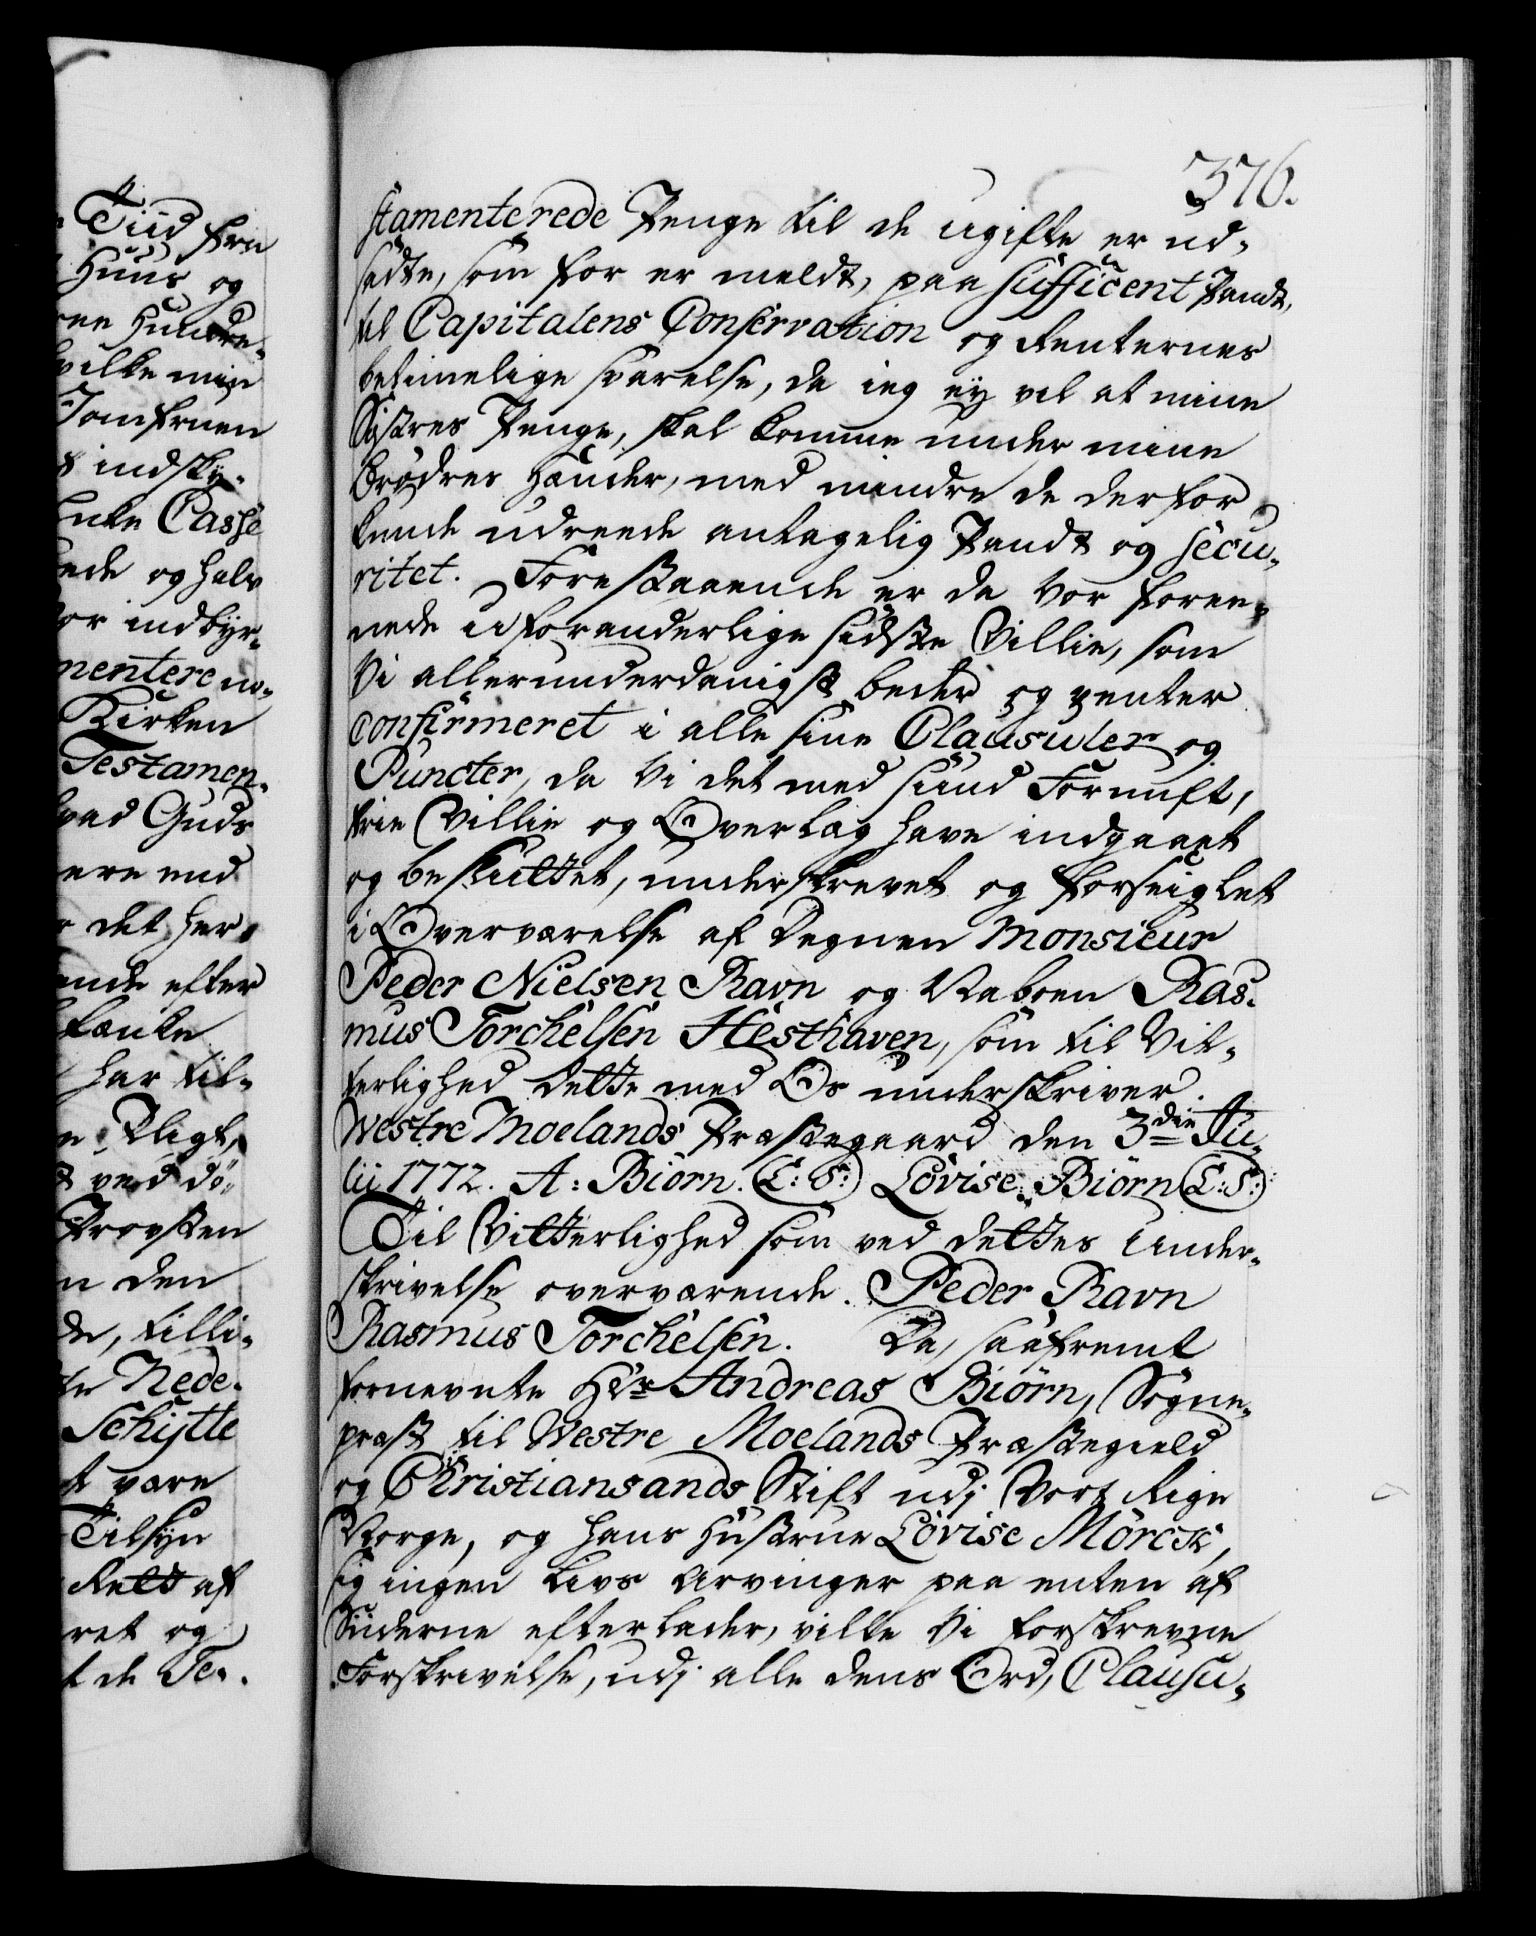 376.
stamenterede Penge til de ugifte er ud-
sadte, som for er meldt, paa sufficent Pandt,
til Capitalens Conservation og Renternes
betimelige svarelse, da ieg ey vil at mine
Søstres Penge, skal komme under mine
Brødres Hænder, med mindre de derfor
kunde udreede antagelig Pandt og secu-
ritet. Forestaaende er da vor foree-
nede uforanderlige sidste Villie, som
Vi allerunderdanigst beder og venter
confirmeret i alle sine Clausuler og
Puncter, da Vi det med sund Fornuft,
frie Villie og Overlæg have indgaaet
og besluttet, underskrevet og forseiglet
i Overværelse af Degnen Monsieur
Peder Nielsen Ravn og Naboen Ras-
mus Torchelsen Hesthaven, som til Vit-
terlighed dette med Os underskriver.
Westre Moelands Præstegaard den 3die Ju-
lii 1772. A: Biørn. (L:S:) Lovise Biørn (L:S:)
Til Vitterlighed som ved dettes Under-
skrivelse overværende. Peder Ravn
Rasmus Torchelsen. Da, saafremt
fornevnte Hr Andreas Biørn, Sogne-
præst til Westre Moelands Præstegield
og Christiansands Stift udj Vort Rige
Norge, og hans Hustrue Lovise Mörch,
sig ingen Livs Arvinger paa enten af
Siiderne efterlader, ville Vi forskrevne
Forskrivelse, udj alle dens Ord, Clausu-
Tiid fra
Huus og
hvilke min
Jomfruen
indsky-
Casse
og halv
or indbyr-
mentere no-
Kirken
Testamen-
hvad Guds
ere end
det her
ende efter
tænke
har til-
Pligt,
ved dö-
Provsten
n den
de, tilli-
Nede-
Schytte
være
Tilsyn
Rett af
ret og
de Te-